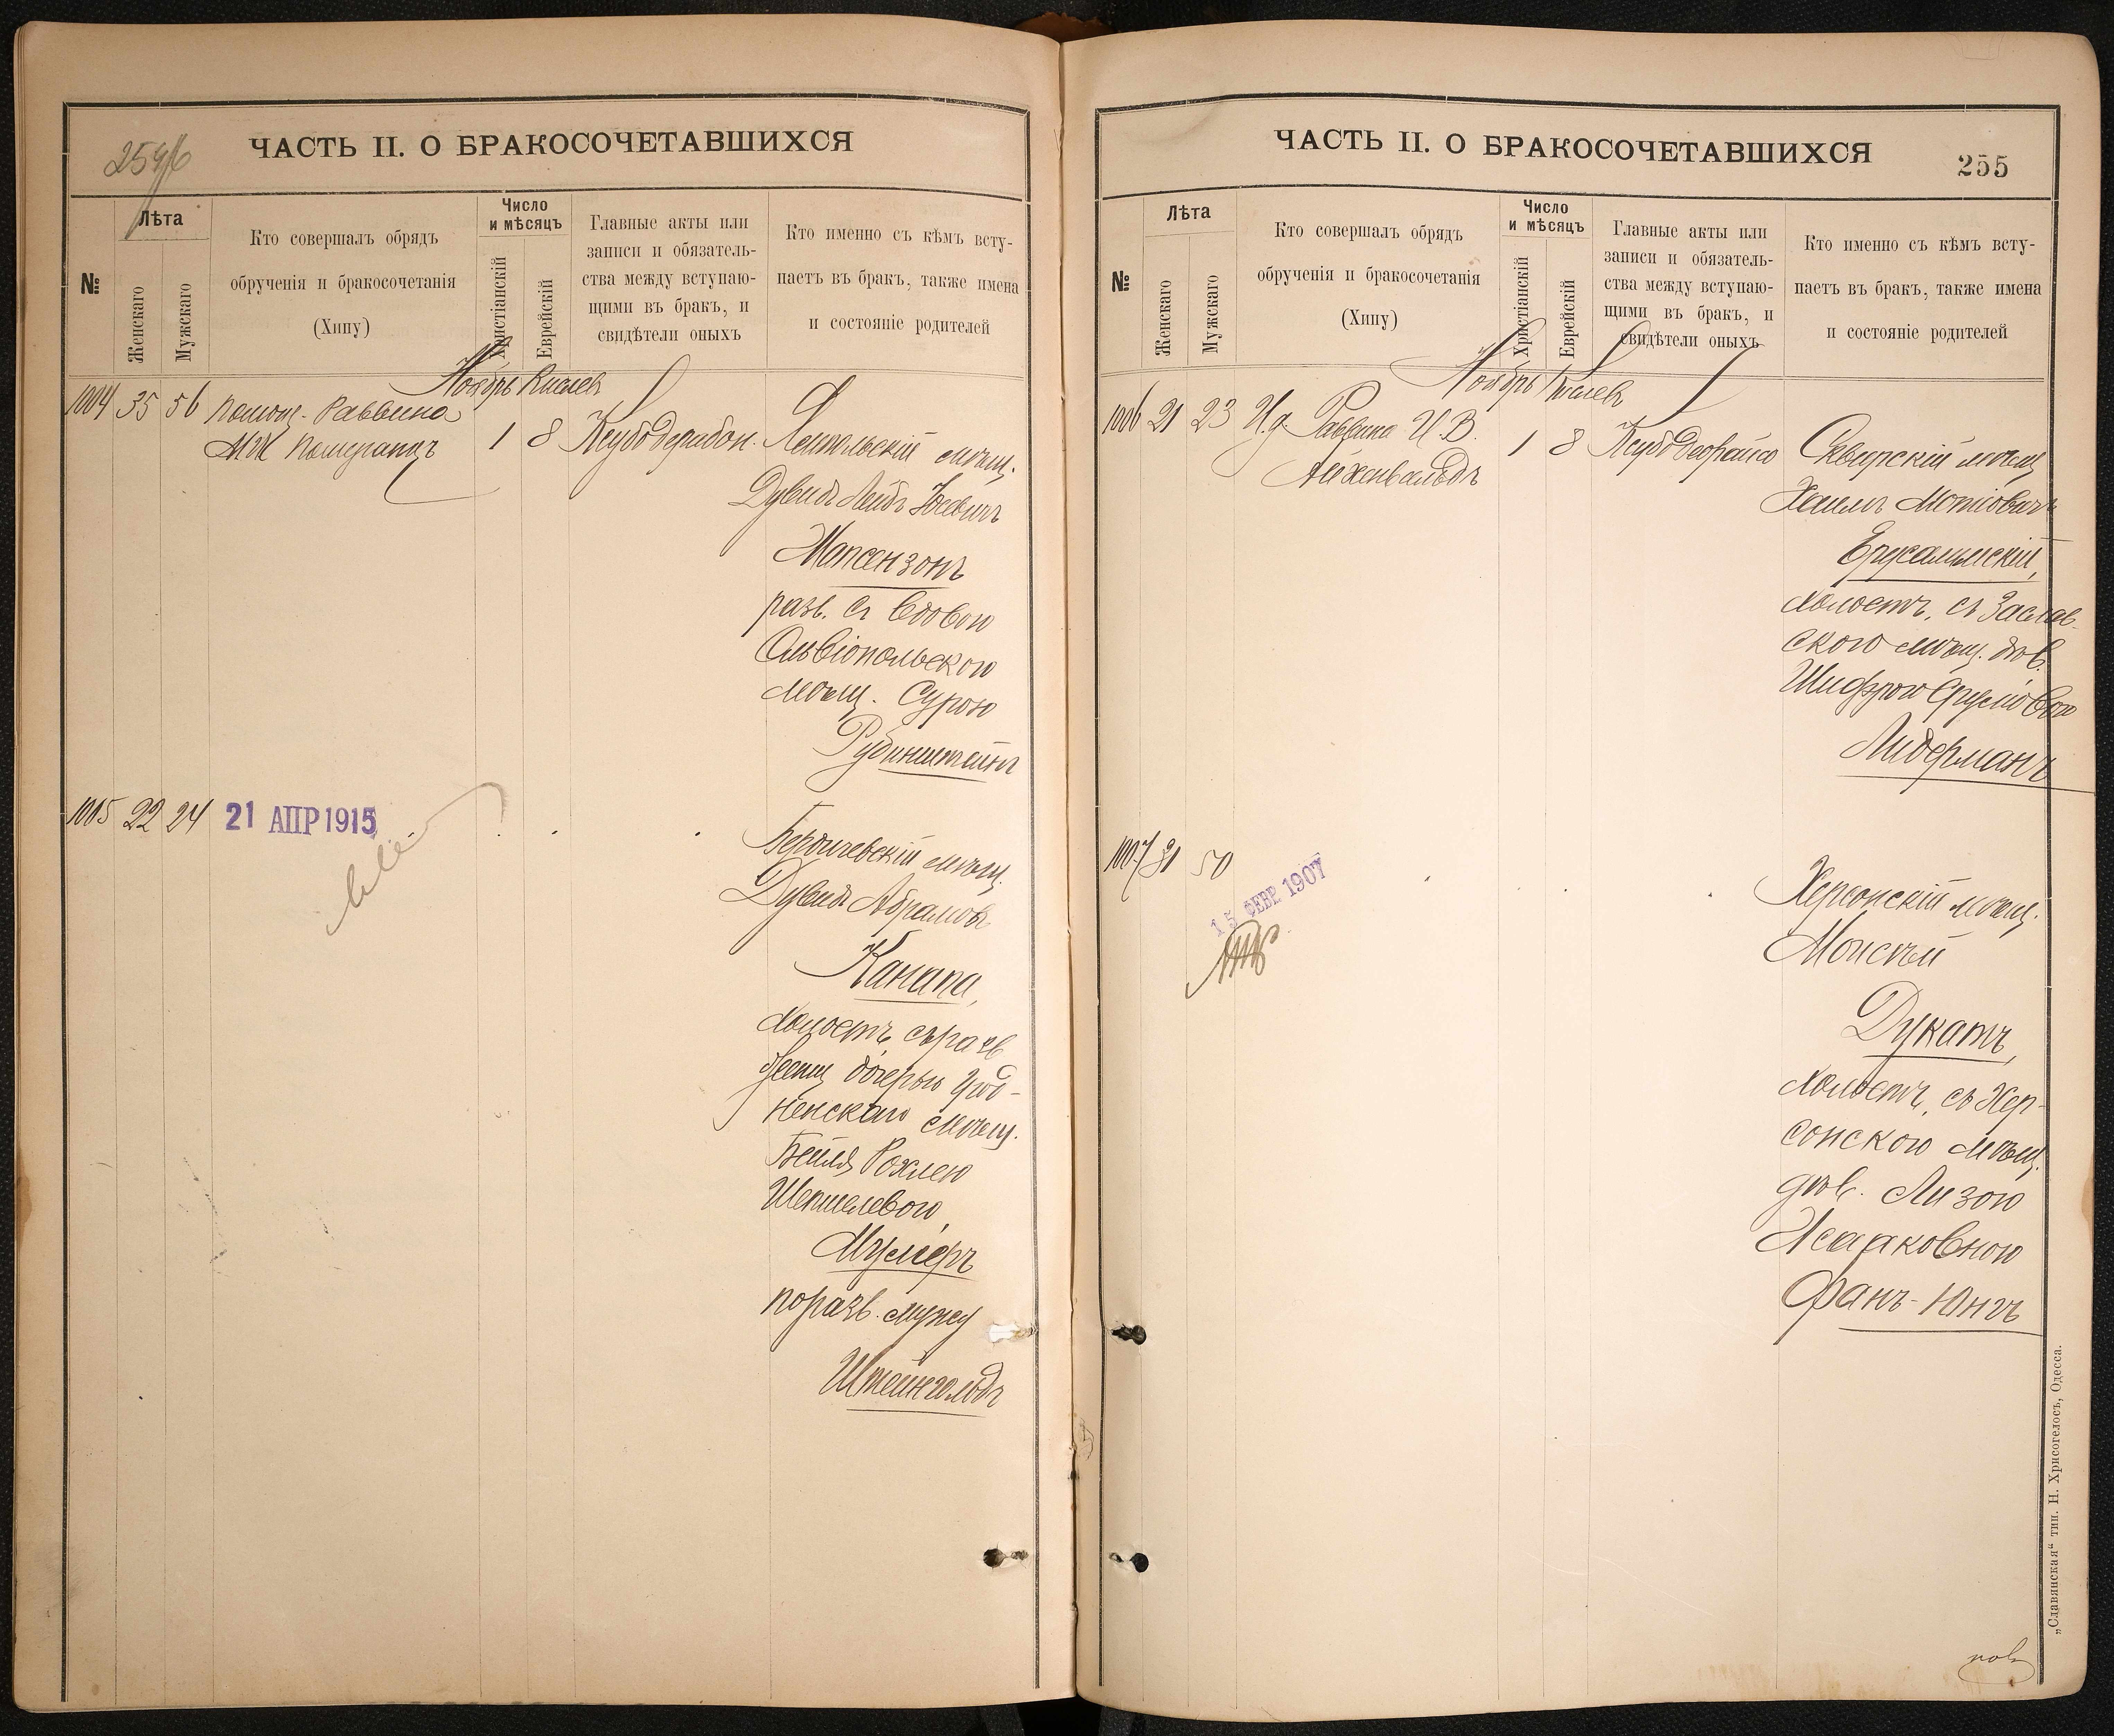 254
ЧАСТЬ II. О БРАКОСОЧЕТАВШИХСЯ
№
Лѣта
Женскаго
Мужскаго
Кто совершалъ обрядъ
обрученія и бракосочетанія
(Хипу)
Число
и мѣсяцъ
Христіанскій
Еврейскій
Главные акты или
записи и обязатель-
ства между вступаю-
щими въ бракъ, и
свидѣтели оныхъ
Кто именно съ кѣмъ всту-
паетъ въ бракъ, также имена
и состояніе родителей
Ноябрь Кислев
1004 35 56 Помощ. Раввина
Померанцъ
1 8
мѣщ.
Дувидъ Лейбъ
Мапсензонъ
разв. съ вдовою
Ольвіопольскою
мѣщ. Сурою
Рубинштейнъ
1005 22 24
21 АПР 1915
Бердичевскій мѣщ.
Дувидъ Абрамовъ
Канапа,
холостъ, съ разв
дочерью Грод-
ненскаго мѣщ.
Бейля Рохлею
Шепшелевою,
Муслеръ
по разв. мужу
Штейнгольдъ
ЧАСТЬ II. О БРАКОСОЧЕТАВШИХСЯ
255
№
Лѣта
Женскаго
Мужскаго
Кто совершалъ обрядъ
обрученія и бракосочетанія
(Хипу)
Число
и мѣсяцъ
Христіанскій
Еврейскій
Главные акты или
записи и обязатель-
ства между вступаю-
щими въ бракъ, и
свидѣтели оныхъ
Кто именно съ кѣмъ всту-
паетъ въ бракъ, также имена
и состояніе родителей
Ноябрь Кислев
1006 21 23 И.д. Раввина И.В.
Айхенвальдъ
1 8
Сквирскій мѣщ
Хаимъ Мотіовичъ
Ерусалимскій,
холостъ, съ Заслав-
скою мѣщ. дѣв.
Шифрою Сруліовою
Лидерманъ
1007 31 50
15 ФЕВР. 1907
Херсонскій мѣщ.
Моисѣй
Дукатъ,
холостъ, съ Хер-
сонскою мѣщ.
дѣв. Лизою
Исааковною
Фанъ-Юнгъ
„Славянская“ тип. Н. Хрисогелосъ, Одесса.